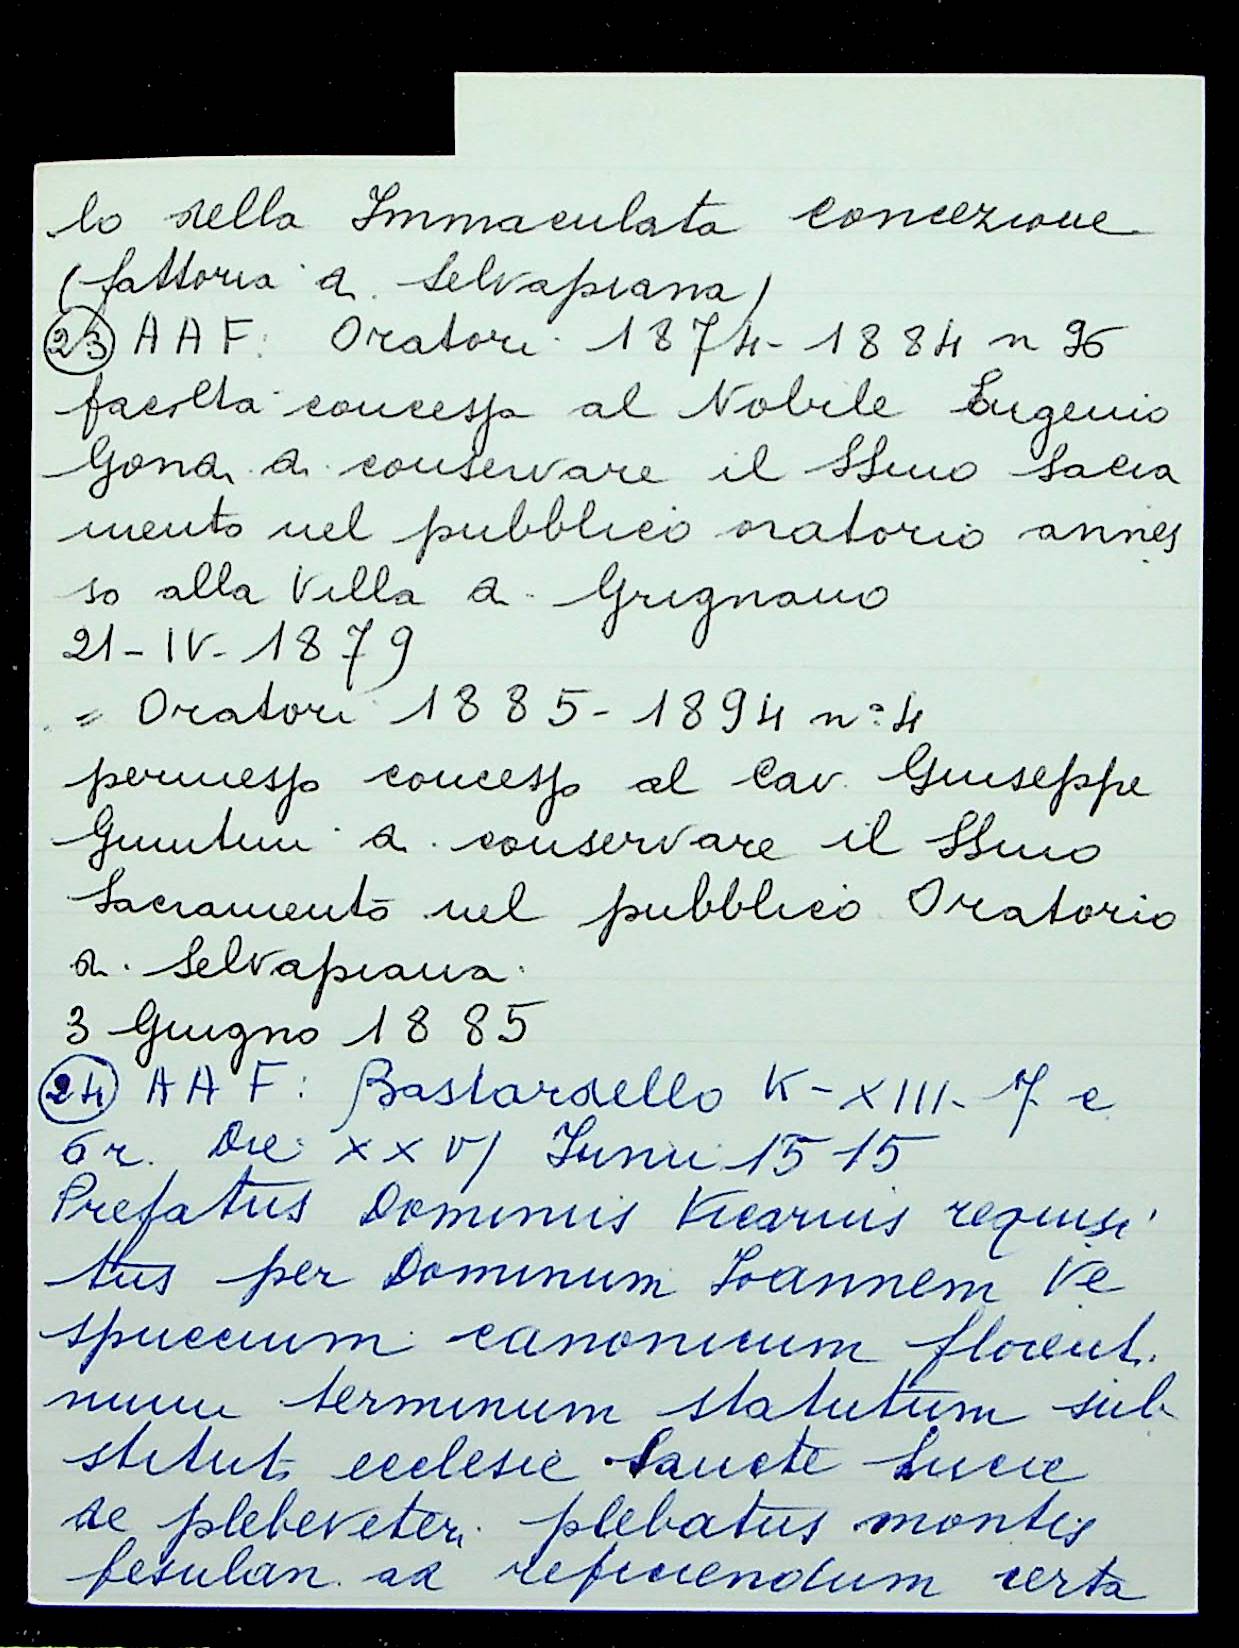 lo della Immaculata concezione
(fattoria di Selvapiana)
23 AAF: Oratori 1874-1884 n 96
facoltà concessa al Nobile Eugenio
Gondi di conservare il SSmo Sacra
mento nel pubblico oratorio annes
so alla Villa di Grignano
21-IV-1879
= Oratori 1885-1894 n° 4
permesso concesso al Cav. Giuseppe
Giuntini di conservare il SSmo
Sacramento nel pubblico Oratorio
di Selvapiana.
3 Giugno 1885
24 AAF: Bastardello K-XIII-7 c
6r. Die XXVI Iunii 1515
Prefatus Dominus Vicarius requisi
tus per Dominum Ioannem Ve
spuccium canonicum florenti
num terminum statutum sub
stituti ecclesie Sancte Lucie
de plebeveteri plebatus montis
fesulan. ad reficiendum certa